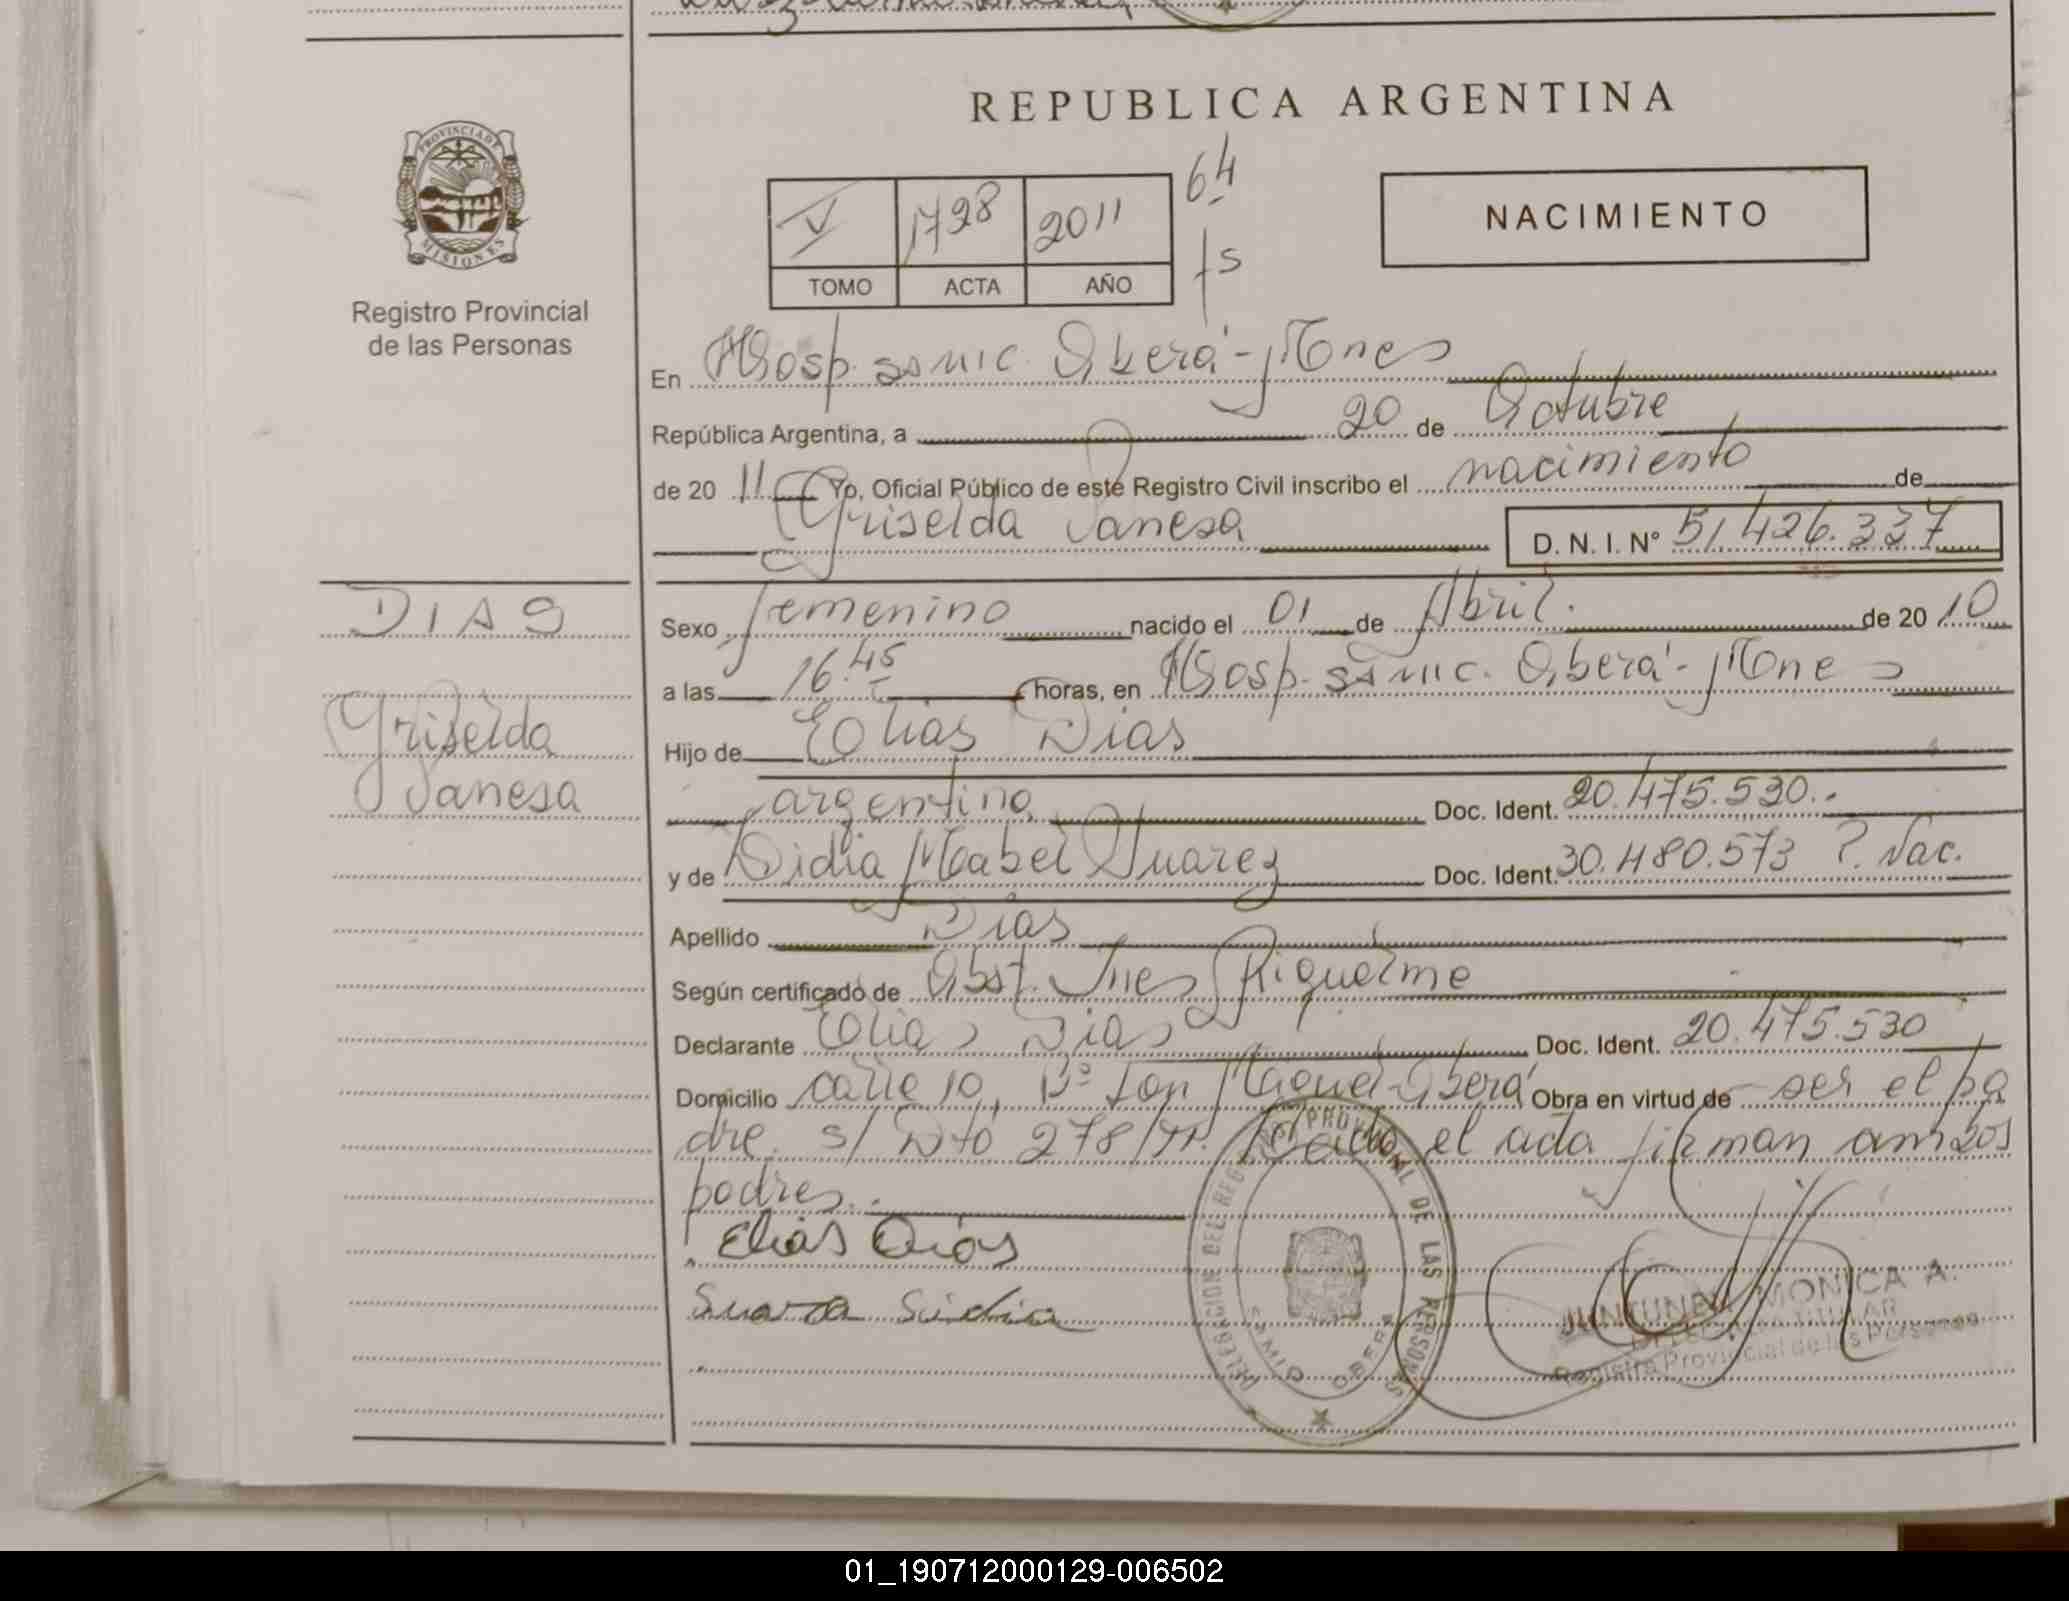 REPUBLICA ARGENTINA
PROVINCIA DE
MISIONES
Registro Provincial
de las Personas
V 1728 2011
TOMO ACTA AÑO
64
fs
NACIMIENTO
En Hosp. samic. Oberá - Mones
República Argentina, a 20 de Octubre
de 20 11 Yo, Oficial Público de este Registro Civil inscribo el nacimiento de
Griselda Vanesa D. N. I. N° 51.426.337
DIAS
Griselda
Vanesa
Sexo femenino nacido el 01 de Abril. de 20 10
a las 16.45 horas, en Hosp. samic. Oberá - Mones
Hijo de Elias Dias
argentino Doc. Ident. 20.475.530.-
y de Lidia Mabel Suarez Doc. Ident. 30.480.573 P. Nac.
Apellido Dias
Según certificado de Obst. Ines Riquelme
Declarante Elias Dias Doc. Ident. 20.475.530
Domicilio calle 10, B° Son Miguel - Oberá Obra en virtud de ser el pa
dre. s/ Dto 278/11. Leida el acta firman ambos
padres.
Elias Dias
Suarez Lidia
DELEGACION DEL REG. PROVINCIAL DE LAS PERSONAS
SAMIC OBERA
MONICA A.
TITULAR
Registro Provincial de las Personas
01_190712000129-006502